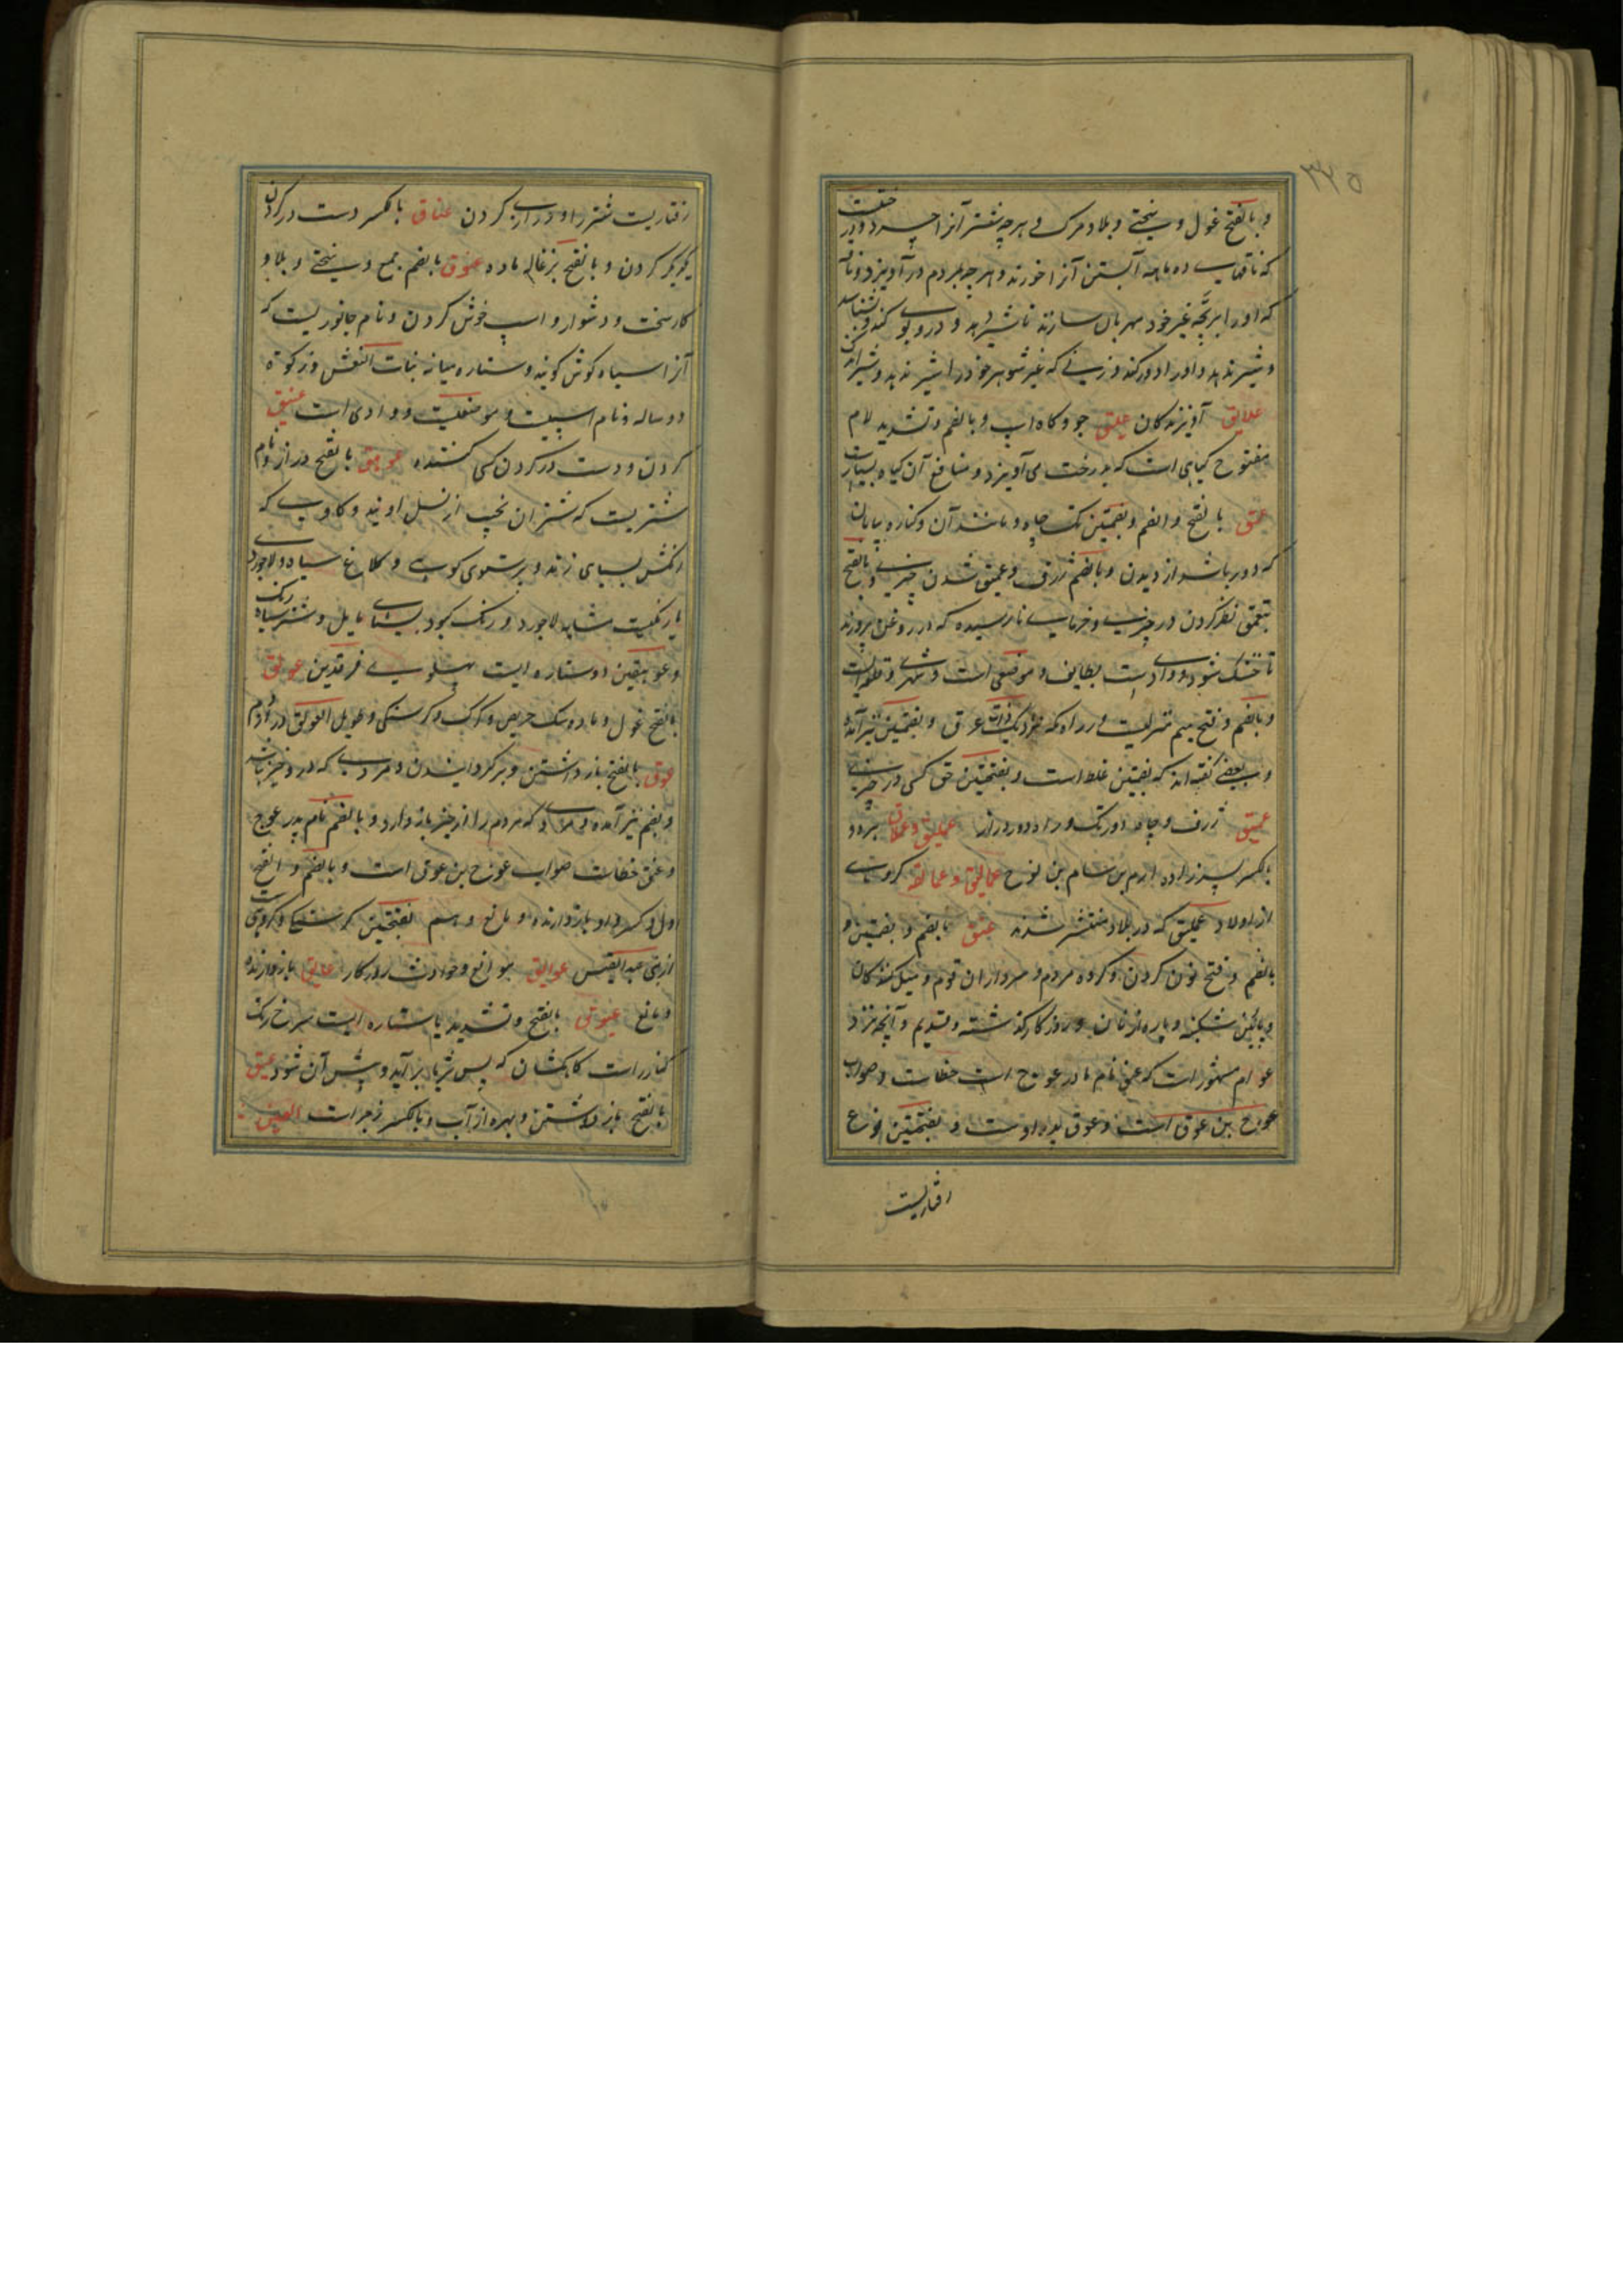 ۳۲۵
و بالفتح غول و سختی و بلا و مرگ و هر چه شتر آنرا چرد و درخت
که ناقهای ده ماهه آبستن آنرا خورند و هر چه بمردم در آویزد و ناقه
که او را بر بچه غیر خود مهربان سازند تا شیر دهد و درو بوی کند و بشناسد
و شیر ندهد و او را دور کند و زنی که غیر شوهر خود را
علایق آویزندگان علیق جو و کاه اسپ و بالضم و تشدید لام
مفتوح گیاهی است که بدرخت می آویزد و منافع آن گیاه بسیارست
عمق بالفتح و الضم و بضمتین تک چاه و مانند آن و کناره بیابان
که دور باشد از دیدن و بالضم ژرف و عمیق شدن چیزی و بالفتح
بتعمق نظر کردن در چیزی و خرمای نارسیده که در روغن پرورند
تا خشک شود و وادیست بطایف و موضعی است و شهری و قلعه ایست
و بالضم و فتح میم منزلیست در راه مکه نزدیک ذات عرق و بضمتین نیز آمده
و بعضی گفته اند که بضمتین غلط است و بفتحتین حق کسی در چیزی
عمیق ژرف و چاه دور تک و راه دور دراز عملیق و عملاق هر دو
بالکسر پسرزاده ارم بن سام بن نوح عمالیق و عمالقه گروهی
از اولاد عملیق که در بلاد منتشر شدند عنق بالضم و بضمتین و
بالضم و فتح نون گردن و گروه مردم و سرداران قوم و میل کنندگان
و پائین شکنبه و پاره از نان و روزگار گذشته و قدیم و آنچه نزد
عوام مشهور است که عنق نام مادر عوج است خطاست و صواب
عوج بن عوق است و عوق پدر اوست و بفتحتین نوع
رفتاریست
رفتاریست شتر را و درازی گردن عناق بالکسر دست در گردن
یکدیگر کردن و بالفتح بزغاله ماده عنوق بالضم جمع و سختی و بلا و
کار سخت و دشوار و اسپ خوش گردن و نام جانوریست که
آنرا سیاه گوش گویند و ستاره میانه بنات النعش و زکوة
دو ساله و نام اسپیست و موضعیست و وادی است عنیق
گردن و دست در گردن کسی کننده عوهق بالفتح دراز و نام
شتریست که شتران نجیب از نسل اویند و گاوی که
رنگش بسیاهی زند و پرستوی کوهی و کلاغ سیاه و لاجورد
یا رنگیست مشابه لاجورد و رنگ کبود بسیاهی مایل و شتر سیاه رنگ
و عوهقین دو ستاره ایست پهلوی فرقدین عولق
بالفتح غول و ماده سگ حریص و گرگ و گرسنگی و طویل العولق دراز دم
عوق بالفتح باز داشتن و برگردانیدن و مردی که درو خیر نباشد
و بضم نیز آمده و مردی که مردم را از خیر باز دارد و بالضم نام پدر عوج
و عنق خطاست صواب عوج بن عوق است و بالضم و الفتح
اول و کسر واو باز دارنده و مانع و اسم بفتحتین گرسنگی و گروهی ست
از بنی عبدالقیس عوایق موانع و حوادث روزگار عایق باز دارنده
و مانع عیوق بالفتح و تشدید یا ستاره ایست سرخ رنگ
کنار راست کاهکشان که پس ثریا بر آید و پیش آن شود عیق
بالفتح باز داشتن و بهره از آب و بالکسر زجر است العین